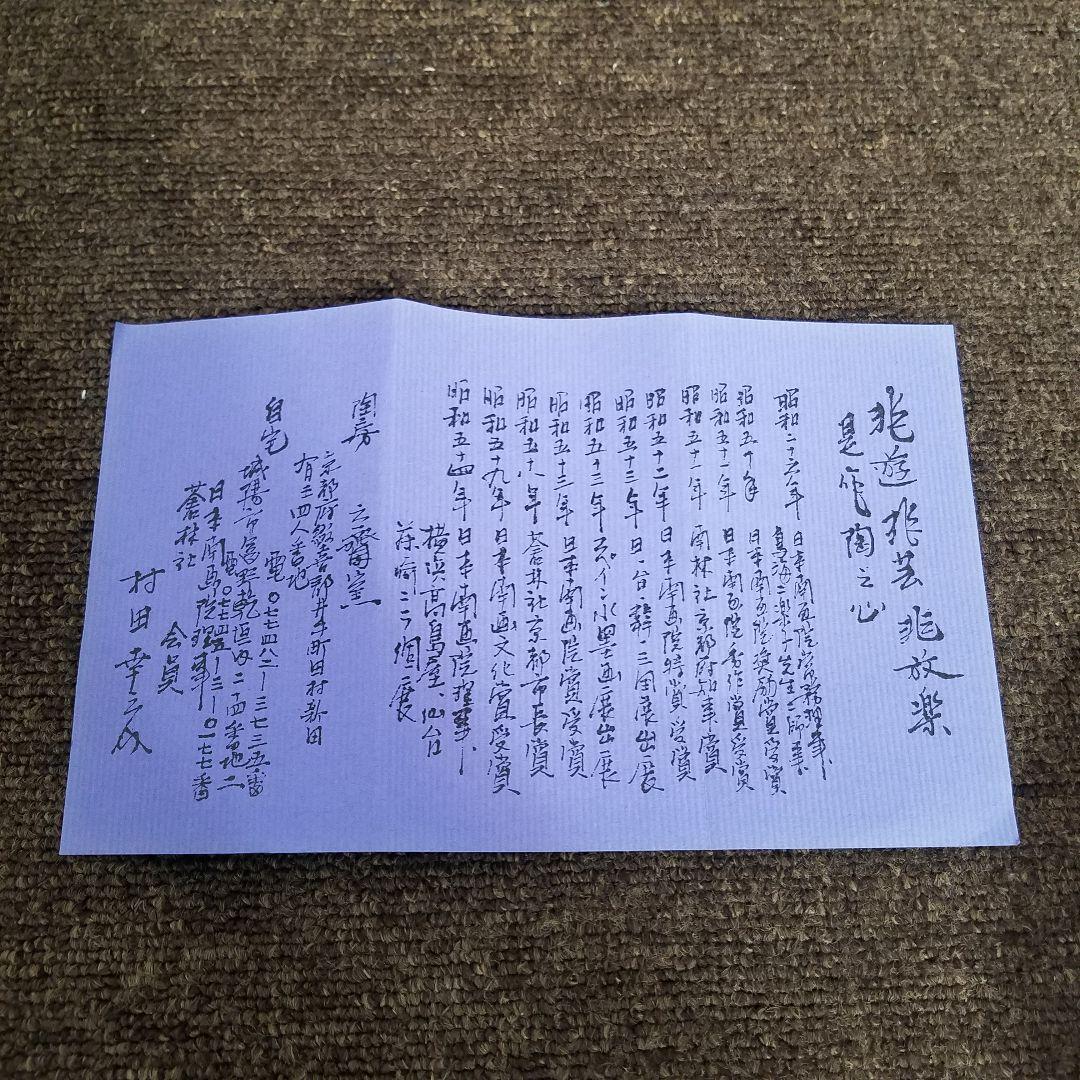 非遊非芸非放楽
是作陶之心
昭和二十六年 日本南画院常務理事
鳥海二楽子先生ニ師事
昭和五十年 日本南画院奨励賞受賞
昭和五十一年 日本南画院秀作賞受賞
昭和五十二年 南林社京都府知事賞
昭和五十二年 日本南画院特賞受賞
昭和五十三年 日・台・韓・三国展出展
昭和五十三年 スペイン水墨画展出展
昭和五十三年 日本南画院賞受賞
昭和五十八年 蒼林社京都市長賞
昭和五十九年 日本南画文化賞受賞
昭和五十四年 日本南画院理事
横浜高島屋、仙台
藤崎ニテ個展
陶房 云齋窯
京都府綴喜郡井手町田村新田
有王四人番地
電〇七七四八二ー三七三五番
自宅 城陽市富野乾垣内二十四番地二
電〇七七四五ー二ー〇一七七番
日本南画院理事
蒼林社 会員
村田幸之成